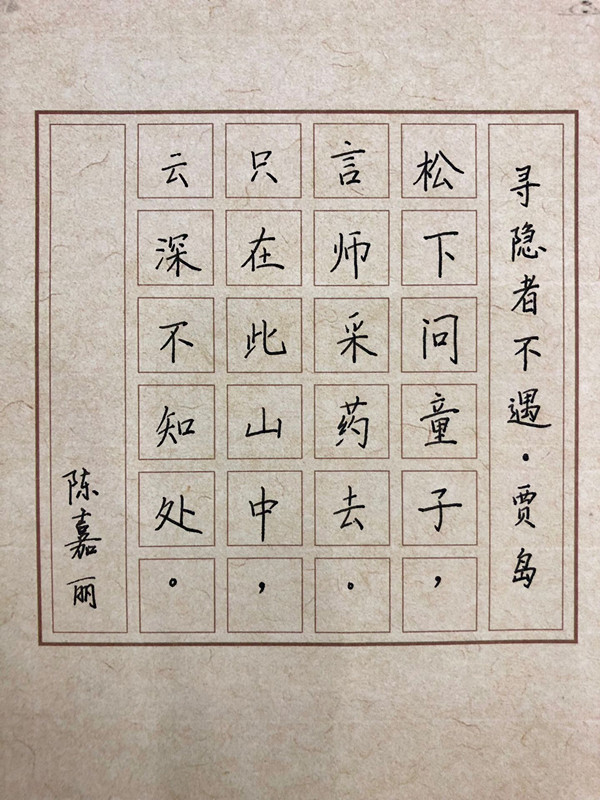 寻隐者不遇·贾岛
松下问童子，
言师采药去。
只在此山中，
云深不知处。
陈嘉丽